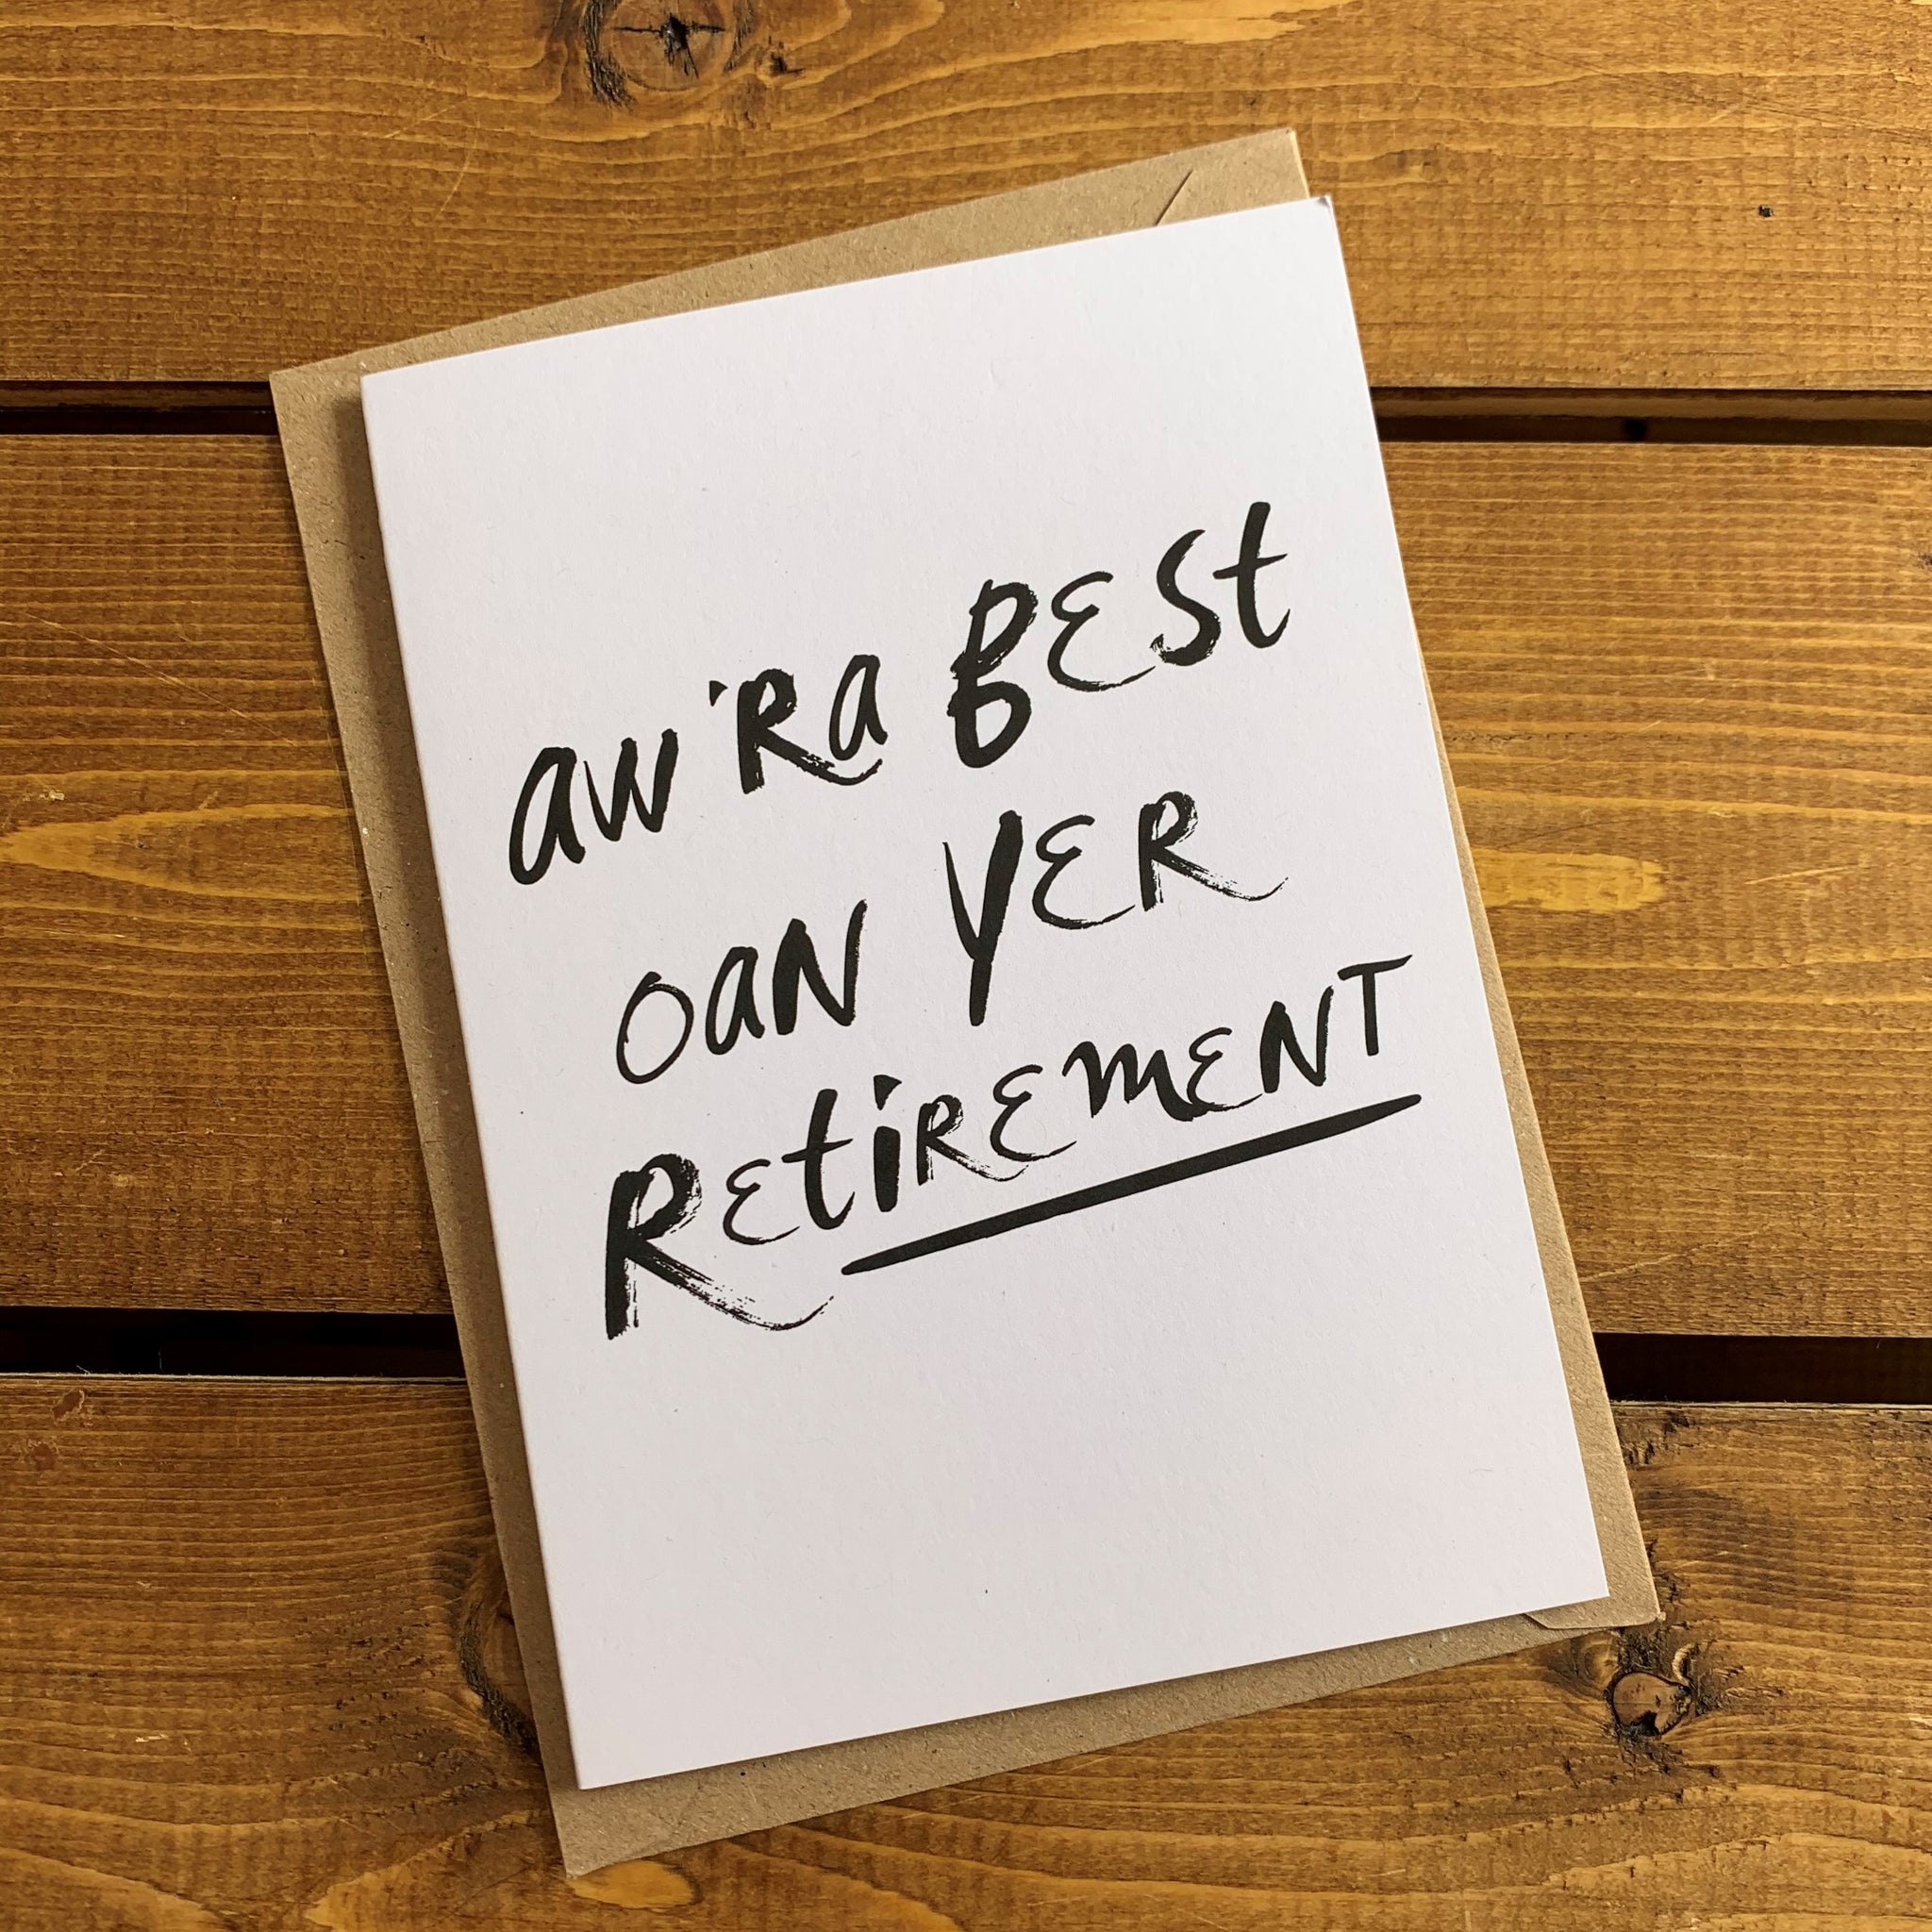 aw'Ra BEst
oaN YER
REtiREmENT